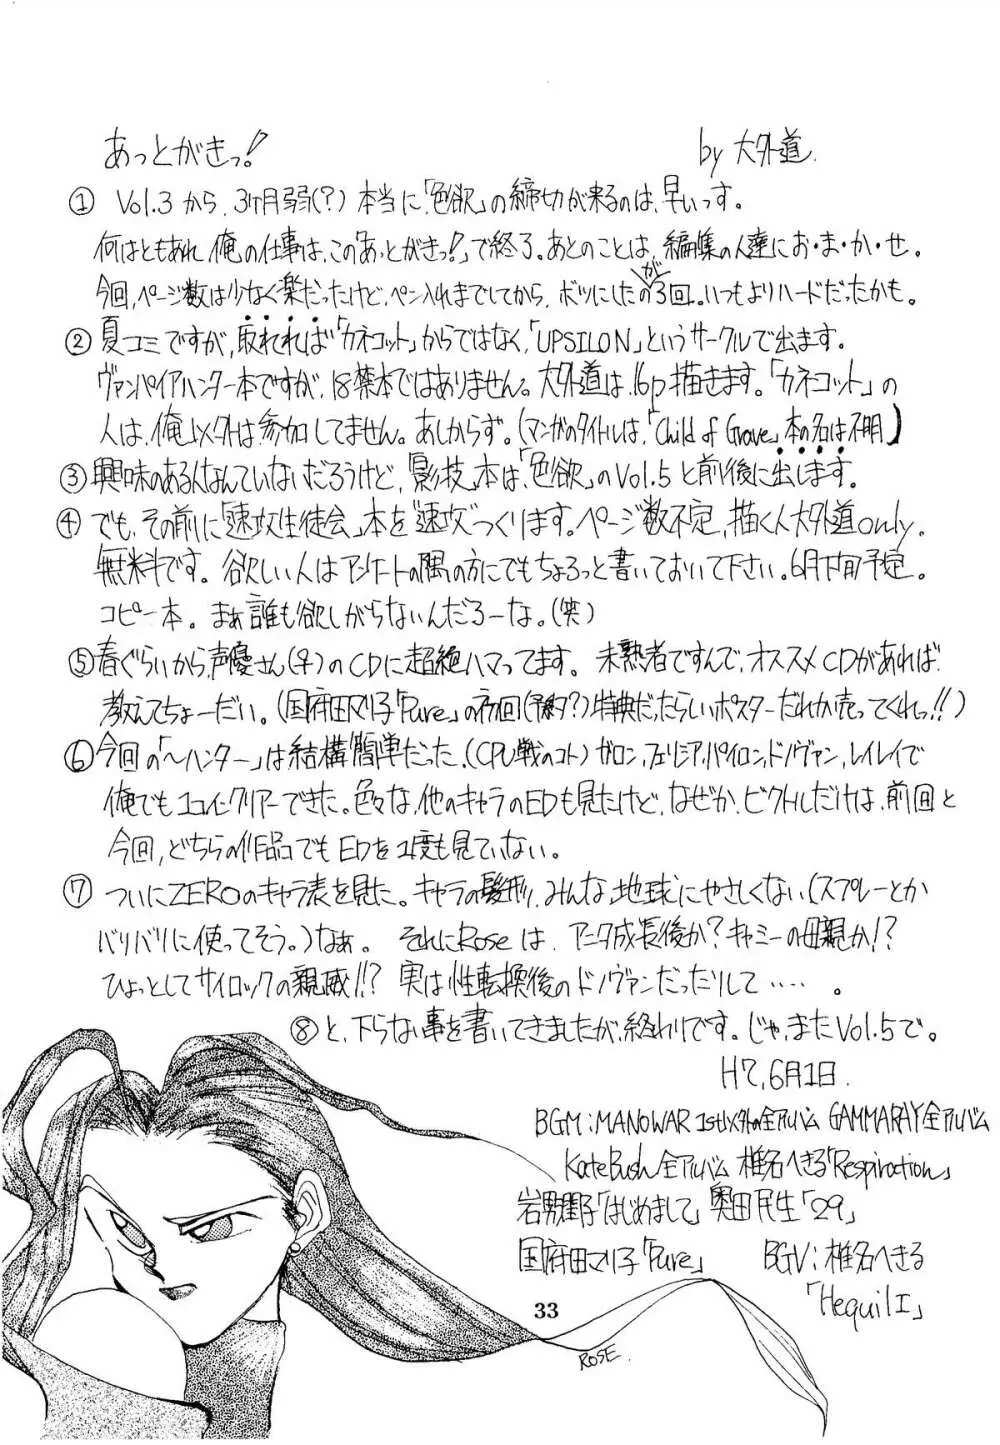 あっとがきっ! by 大外道.
① Vol.3 から、3ヶ月弱(?) 本当に「色欲」の締切が来るのは、早いっす。
何はともあれ、俺の仕事は、この「あっとがきっ!」で終了。あとのことは、編集の人達にお・ま・か・せ。
今回、ページ数は少なく楽だったけど、ペン入れまでしてから、ボツにしたのが3回。いつもよりハードだったかも。
② 夏コミですが、取れてれば「カネコット」からではなく、「UPSILON」というサークルで出ます。
ヴァンパイアハンター本ですが、18禁本ではありません。大外道は、16p描きます。「カネコット」の
人は、俺以外は参加してません。あしからず。(マンガのタイトルは、「Child of Grave」本の名は不明)
③ 興味のある人なんていないだろうけど、「影技」本は、「色欲」のVol.5 と前後に出します。
④ でも、その前に「速攻生徒会」本を“速攻”つくります。ページ数不定、描く人大外道only.
無料です。欲しい人はアンケートの隅の方にでもちょろっと書いておいて下さい。6月下旬予定。
コピー本。まぁ誰も欲しがらないんだろーな。(笑)
⑤ 春ぐらいから、声優さん(♀)のCDに超絶ハマってます。未熟者ですんで、オススメCDがあれば、
教えてちょーだい。(国府田マリ子「Pure」の初回(予約?)特典だったらしいポスターだれか売ってくれっ!!)
⑥ 今回の「〜ハンター」は結構簡単だった。(CPU戦のコト) ガロン,フェリシア,パイロン,ドノヴァン,レイレイで
俺でも1コインクリアーできた。色々な、他のキャラのEDも見たけど、なぜか、ビクトルだけは、前回と
今回、どちらの作品でもEDを1度も見ていない。
⑦ ついにZEROのキャラ表を見た。キャラの髪形、みんな地球にやさしくない(スプレーとか
バリバリに使ってそう。)なぁ。 それにRoseは、アニタ成長後か? キャミーの母親か!?
ひょっとしてサイロックの親戚!!? 実は性転換後のドノヴァンだったりして‥‥‥。
⑧ と、下らない事を書いてきましたが、終わりです。じゃ、またVol.5で。
H7,6月1日.
BGM:MANOWAR 1st以外の全アルバム GAMMARAY全アルバム
Kate Bush 全アルバム 椎名へきる「Respiration」
岩男潤子「はじめまして」奥田民生「29」
国府田マリ子「Pure」 BGV:椎名へきる
「Hequil I」
33
ROSE.